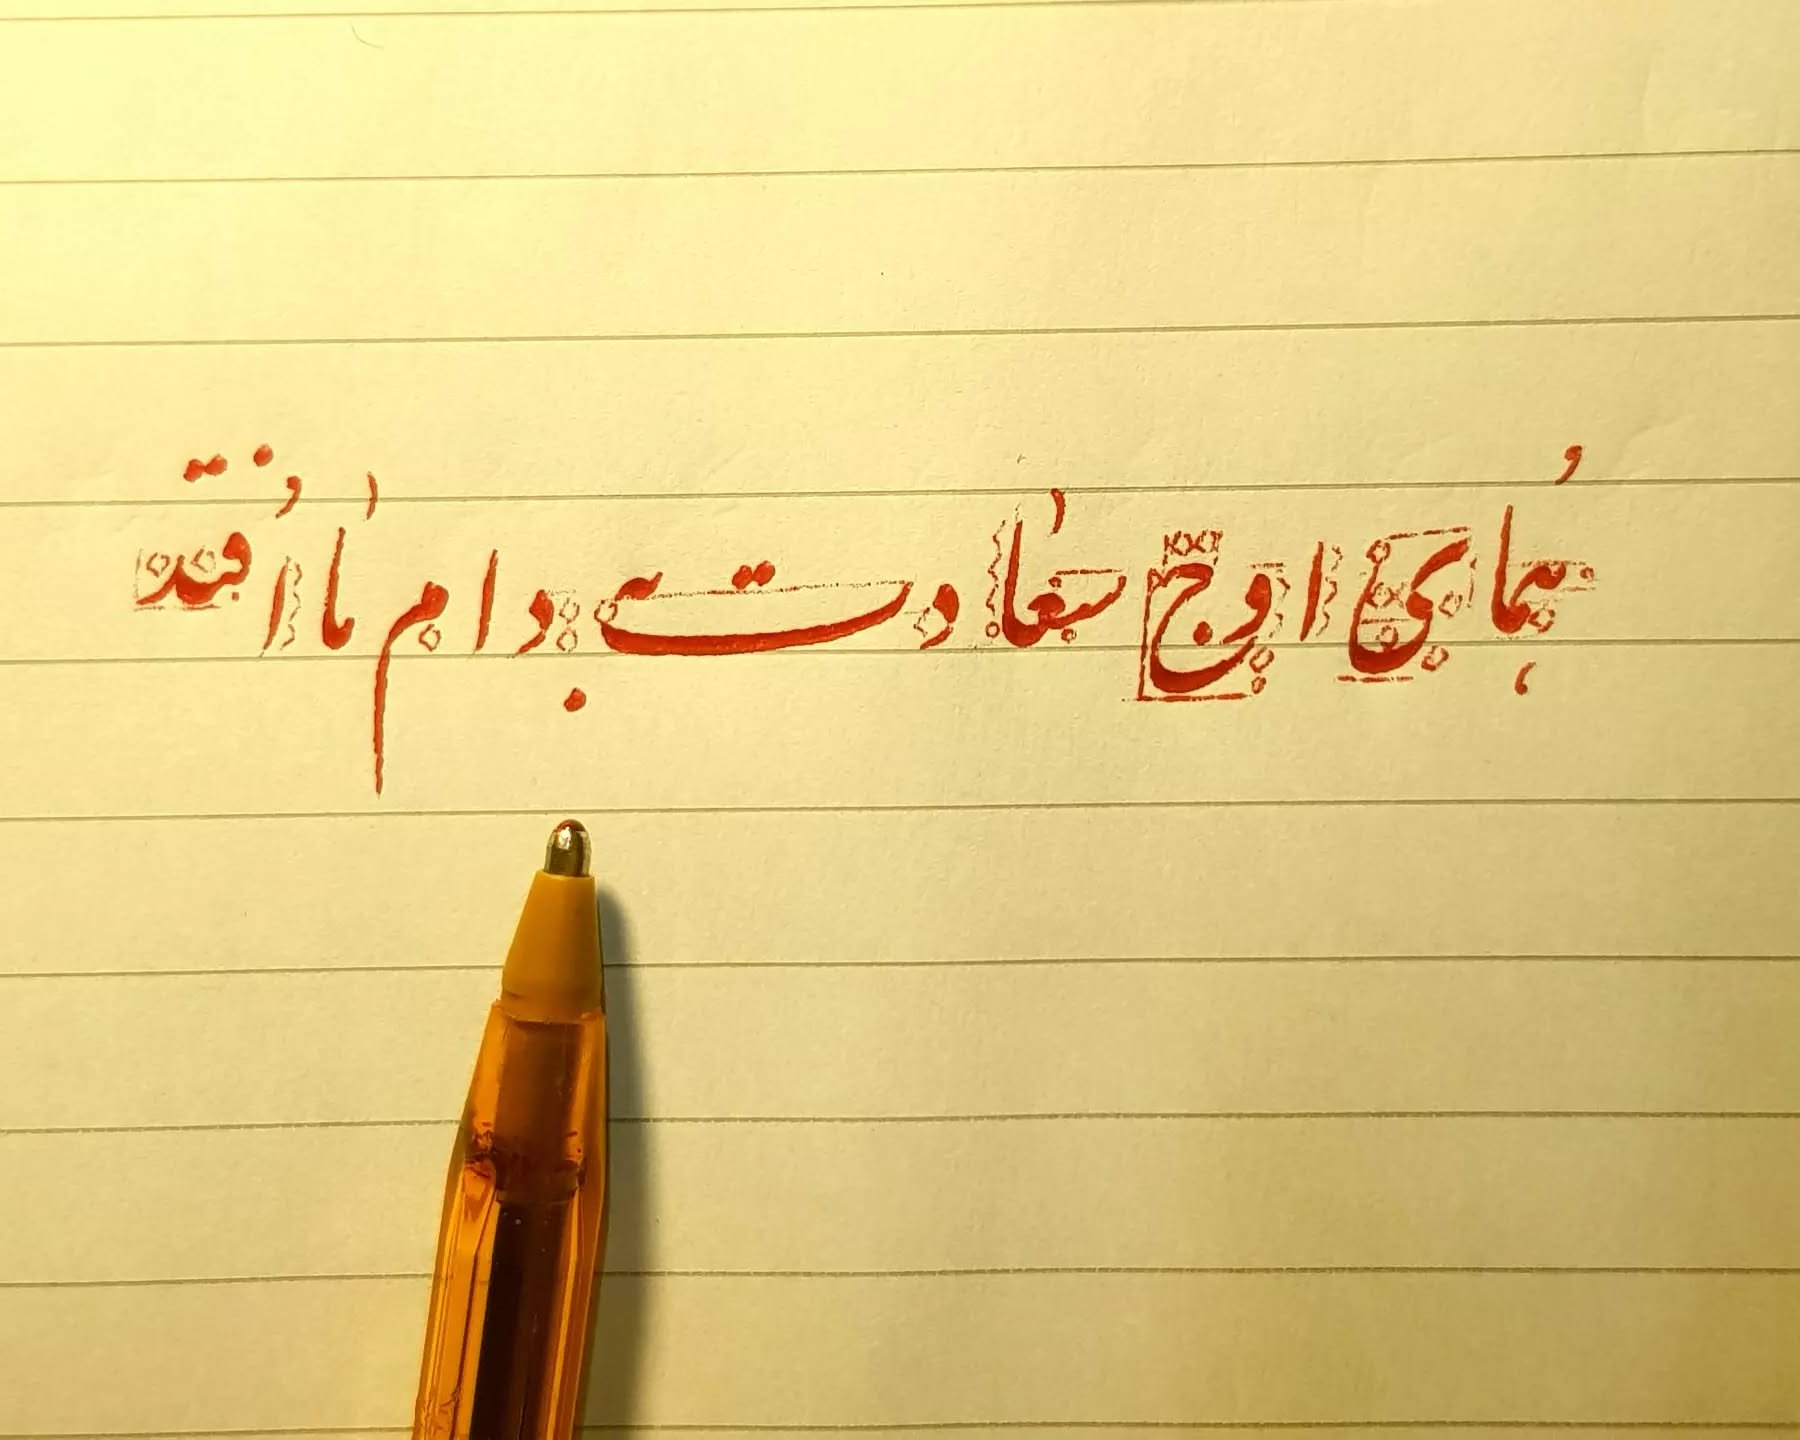 ہُمای اوج سعادت بہ دام ما اُفتد